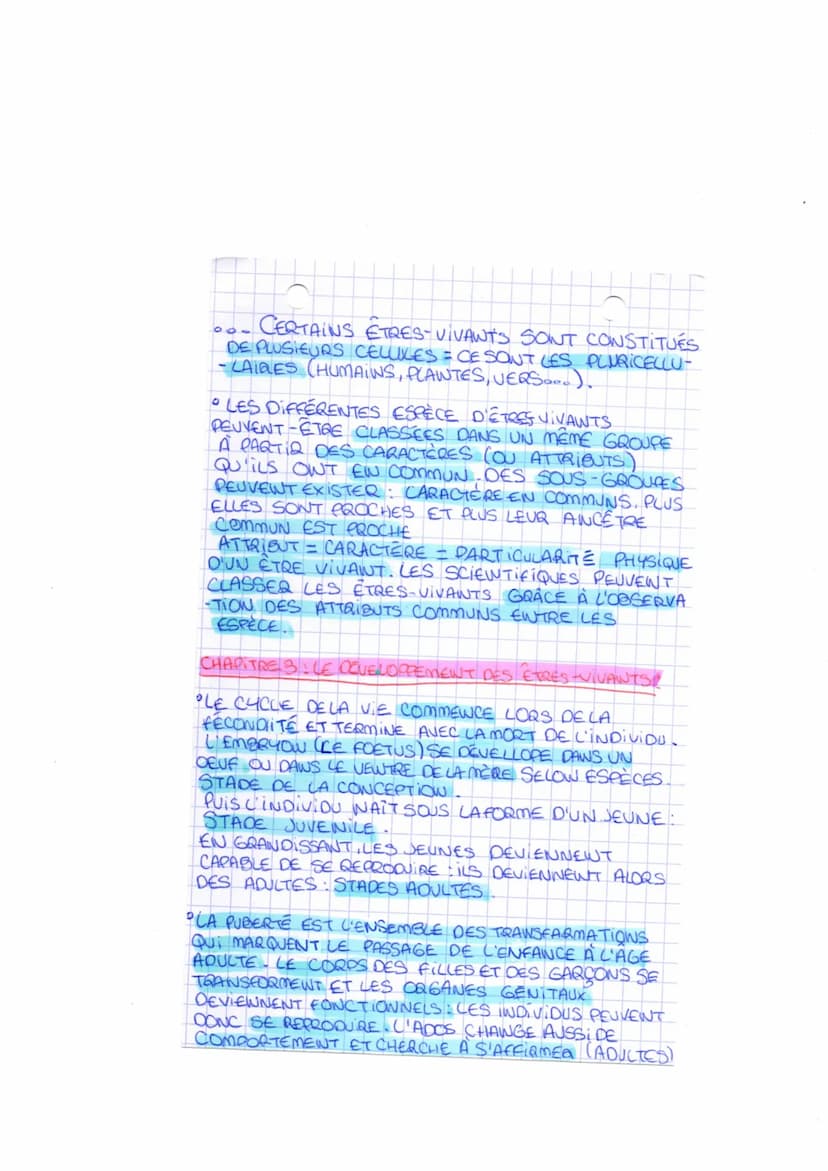 ... CERTAINS ÊTRES-VIVANTS SONT CONSTITUÉS
DE PLUSIEURS CELLULES = CE SONT LES PLURICELLU-
-LAIRES (HUMAINS, PLANTES, VERS...).
° LES DIFFÉRENTES ESPÈCE D'ÊTRES VIVANTS
PEUVENT-ÊTRE CLASSÉES DANS UN MÊME GROUPE
À PARTIR DES CARACTÈRES (OU ATTRIBUTS)
QU'ILS ONT EN COMMUN. DES SOUS-GROUPES
PEUVENT EXISTER : CARACTÈRE EN COMMUNS. PLUS
ELLES SONT PROCHES ET PLUS LEUR ANCÊTRE
COMMUN EST PROCHE
ATTRIBUT = CARACTÈRE = PARTICULARITÉ PHYSIQUE
D'UN ÊTRE VIVANT. LES SCIENTIFIQUES PEUVENT
CLASSER LES ÊTRES-VIVANTS GRÂCE À L'OBSERVA
-TION DES ATTRIBUTS COMMUNS ENTRE LES
ESPÈCE.
CHAPITRE 3 : LE DÉVELOPPEMENT DES ÊTRES-VIVANTS!
° LE CYCLE DE LA VIE COMMENCE LORS DE LA
FÉCONDITÉ ET TERMINE AVEC LA MORT DE L'INDIVIDU.
L'EMBRYON (LE FOETUS) SE DÉVELLOPE DANS UN
OEUF OU DANS LE VENTRE DE LA MÈRE SELON ESPÈCES.
STADE DE LA CONCEPTION.
PUIS L'INDIVIDU NAÎT SOUS LA FORME D'UN JEUNE :
STADE JUVENILE.
EN GRANDISSANT, LES JEUNES DEVIENNENT
CAPABLE DE SE REPRODUIRE : ILS DEVIENNENT ALORS
DES ADULTES : STADES ADULTES.
° LA PUBERTÉ EST L'ENSEMBLE DES TRANSFARMATIONS
QUI MARQUENT LE PASSAGE DE L'ENFANCE À L'AGE
ADULTE. LE CORPS DES FILLES ET DES GARÇONS SE
TRANSFORMENT ET LES ORGANES GÉNITAUX
DEVIENNENT FONCTIONNELS : LES INDIVIDUS PEUVENT
DONC SE REPRODUIRE. L'ADOS CHANGE AUSSI DE
COMPORTEMENT ET CHERCHE À S'AFFIRMER (ADULTES)